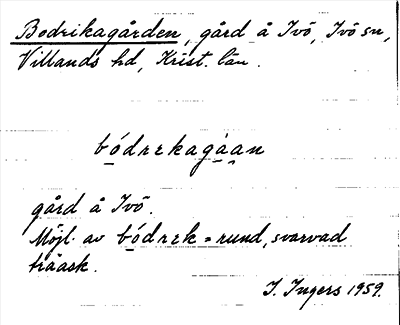 Bodrikagården, gård å Ivö, Ivö sn,
Villands hd, Krist. län.
bódrekagåan
gård å Ivö.
Möjl. av bódrek = rund, svarvad
träask.
I. Ingers 1959.